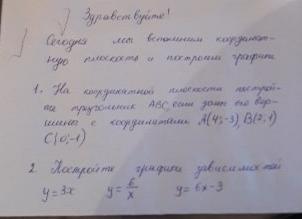 Здравствуйте!
Сегодня мы вспомним координат-
ную плоскость и построим графики
1. На координатной плоскости построй-
те треугольник ABC, если даны его вер-
шины с координатами A(4;-3), B(2;1)
C(0;-1)
2 Постройте графики зависимостей
y=3x y=6/x y=6x-3